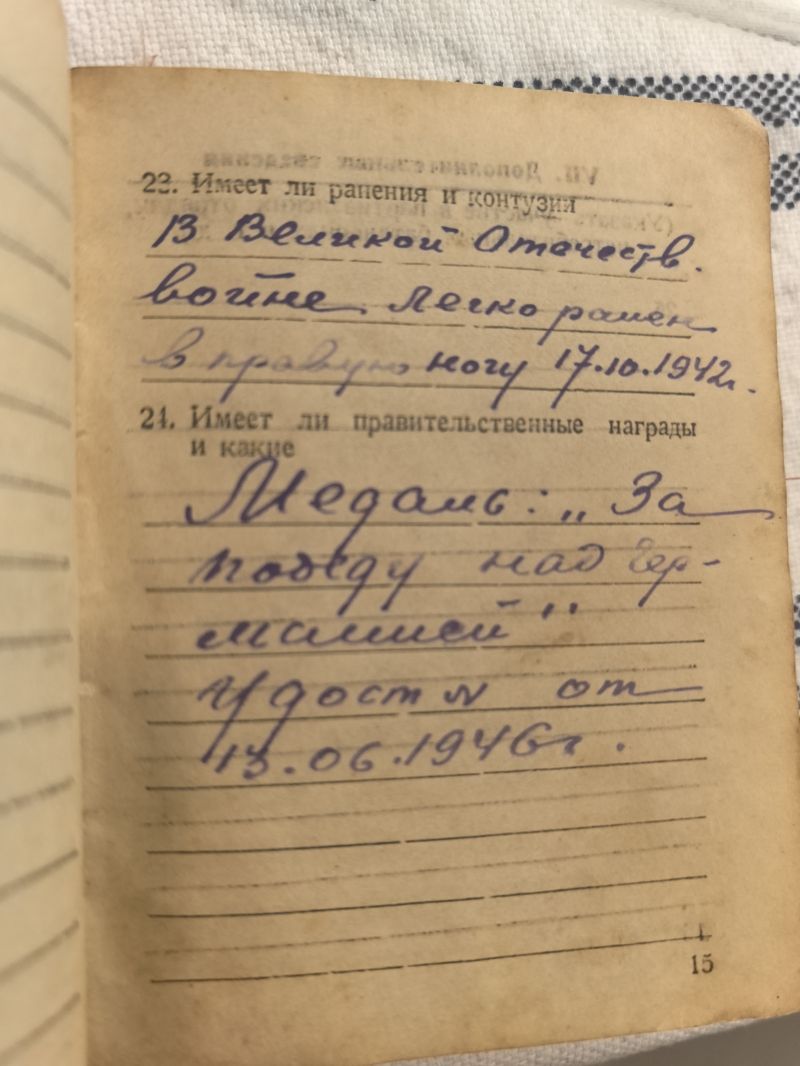 23. Имеет ли ранения и контузия
В Великой Отечеств.
войне легко ранен
в правую ногу 17.10.1942г.
24. Имеет ли правительственные награды
и какие
Медаль: „За
победу над Гер-
манией"
Удост №  от
13.06.1946г.
15